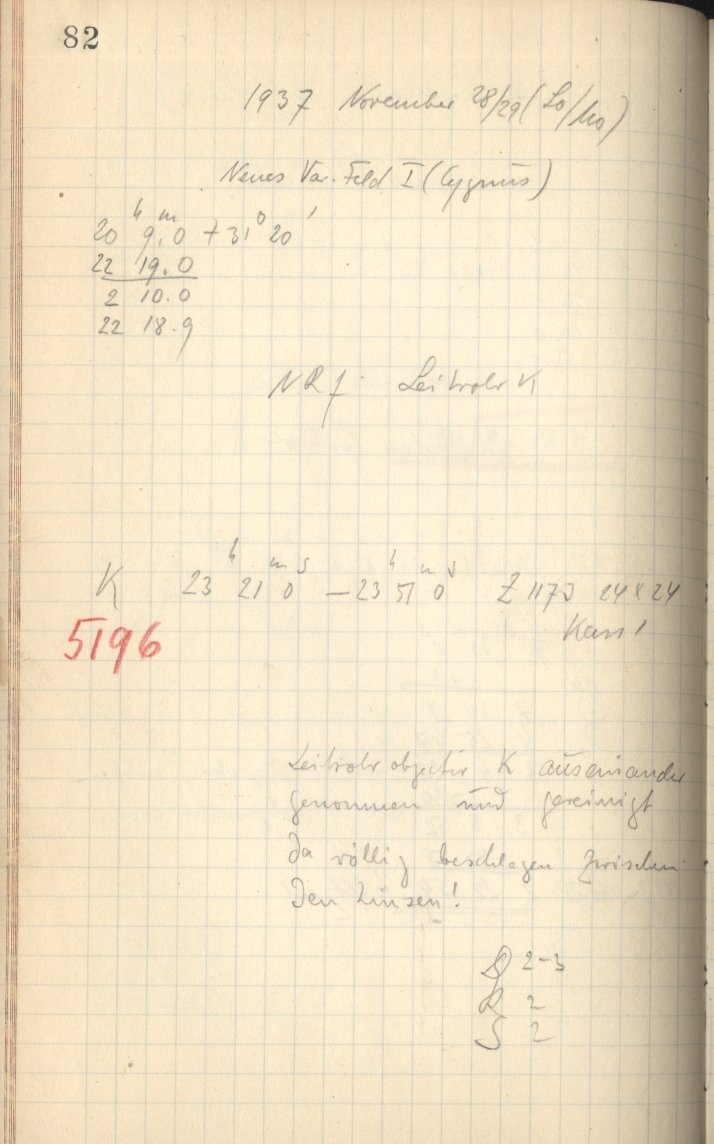 82
1937 November 28/29 (So/Mo)
Neues Var. Feld I (Cygnus)
20ʰ 9ᵐ.0 + 31° 20'
22 19.0
2 10.0
22 18.9
NR f. Leitrohr K
K 23ʰ 21ᵐ 0ˢ — 23ʰ 51ᵐ 0ˢ Z 1173 24 x 24
5196
Leitrohrobjectiv K auseinander
genommen und gereinigt
da völlig beschlagen zwischen
den Linsen!
D 2-3
R 2
S 2